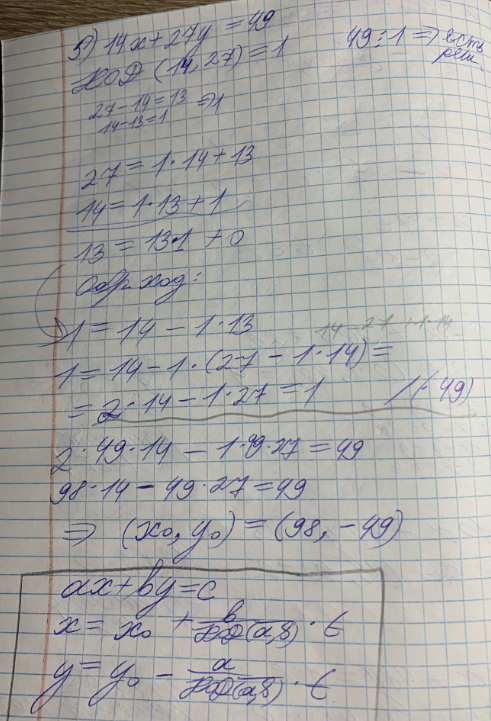 2) 14x + 27y = 49
49 : 1 => есть
реш.
НОД (14, 27) = 1
27 - 14 = 13
14 - 13 = 1 => 1
27 = 1 · 14 + 13
14 = 1 · 13 + 1
13 = 13 · 1 + 0
Обр. ход:
1 = 14 - 1 · 13
14 - 27 + 1 · 14
1 = 14 - 1 · (27 - 1 · 14) =
= 2 · 14 - 1 · 27 = 1 / (· 49)
2 · 49 · 14 - 1 · 49 · 27 = 49
98 · 14 - 49 · 27 = 49
=> (x₀, y₀) = (98, -49)
ax + by = c
x = x₀ + в/НОД(а,в) · t
y = y₀ - а/НОД(а,в) · t